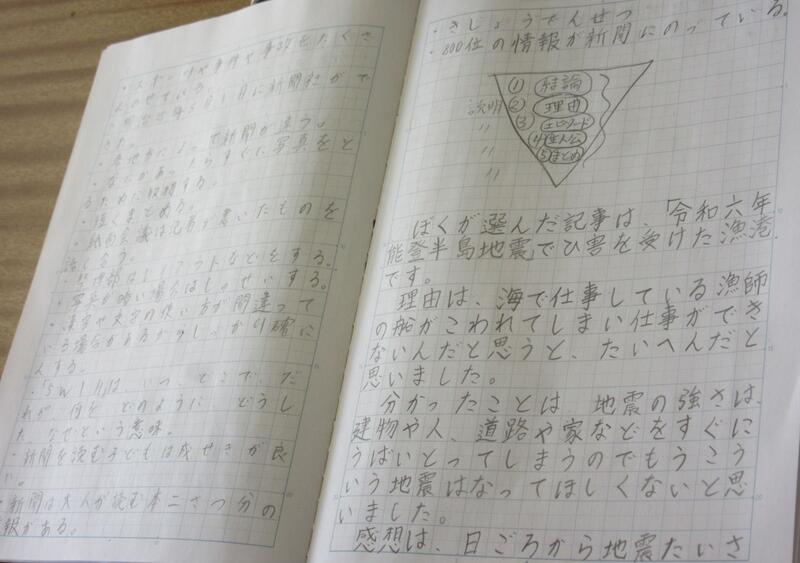 ・スポーツや事件や事故をたくさ
んのせている。
・明治5年5日1日に新聞社がで
きた。
・各地方によって新聞が違う。
・なにかあったらすぐに写真をと
るために取材する。
・短くまとめる。
・紙面会議は記者が書いたものを
話し合う。
・整理部はレイアウトなどをする。
・写真が暗い場合はしっせいする。
・漢字や文字の使い方が間違って
いる場合があるからしっかり確に
んする。
・「5W1H」は、いつ、どこで、だ
れが、何を、どのように、どうし
た、なぜという意味。
・新聞を読む子どもは成せきが良
い。
・新聞は大人が読む本二さつ分の
報がある。
・きしょうてんせつ
・800位の情報が新聞にのっている。
①結論
説明②理由
〃③エピソード
〃④主人公
〃⑤まとめ
ぼくが選んだ記事は、「令和六年
能登半島地震」でひ害を受けた漁港
です。
理由は、海で仕事している漁師
の船がこわれてしまい仕事ができ
ないんだと思うと、たいへんだと
思いました。
分かったことは、地震の強さは、
建物や人、道路や家などをすぐに
うばいとってしまうのでもうこう
いう地震はなってほしくないと思
いました。
感想は、日ごろから地震たいさ